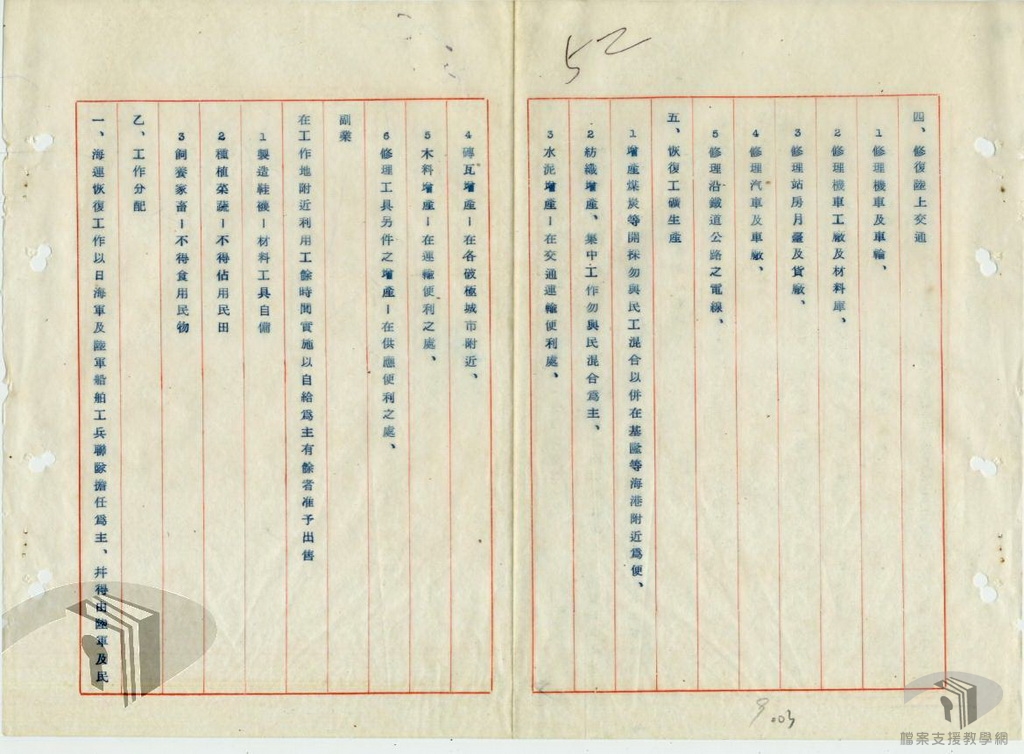 52
四、修復陸上交通
1修理機車及車輪、
2修理機車工廠及材料庫、
3修理站房月臺及貨廠、
4修理汽車及車廠、
5修理沿鐵道公路之電線、
五、恢復工礦生產
1增產煤炭等開採勿與民工混合以併在基隆等海港附近爲便、
2紡織增產、集中工作勿與民混合爲主、
3水泥增產－在交通運輸便利處、
4磚瓦增產－在各破極城市附近、
5木料增產－在運輸便利之處、
6修理工具另件之增產－在供應便利之處、
副業
在工作地附近利用工餘時間實施以自給爲主有餘者准予出售
1製造鞋襪－材料工具自備
2種植菜蔬－不得佔用民田
3飼養家畜－不得食用民物
乙、工作分配
一、海運恢復工作以日海軍及陸軍船舶工兵聯隊擔任爲主、幷得由陸軍及民
檔案支援教學網